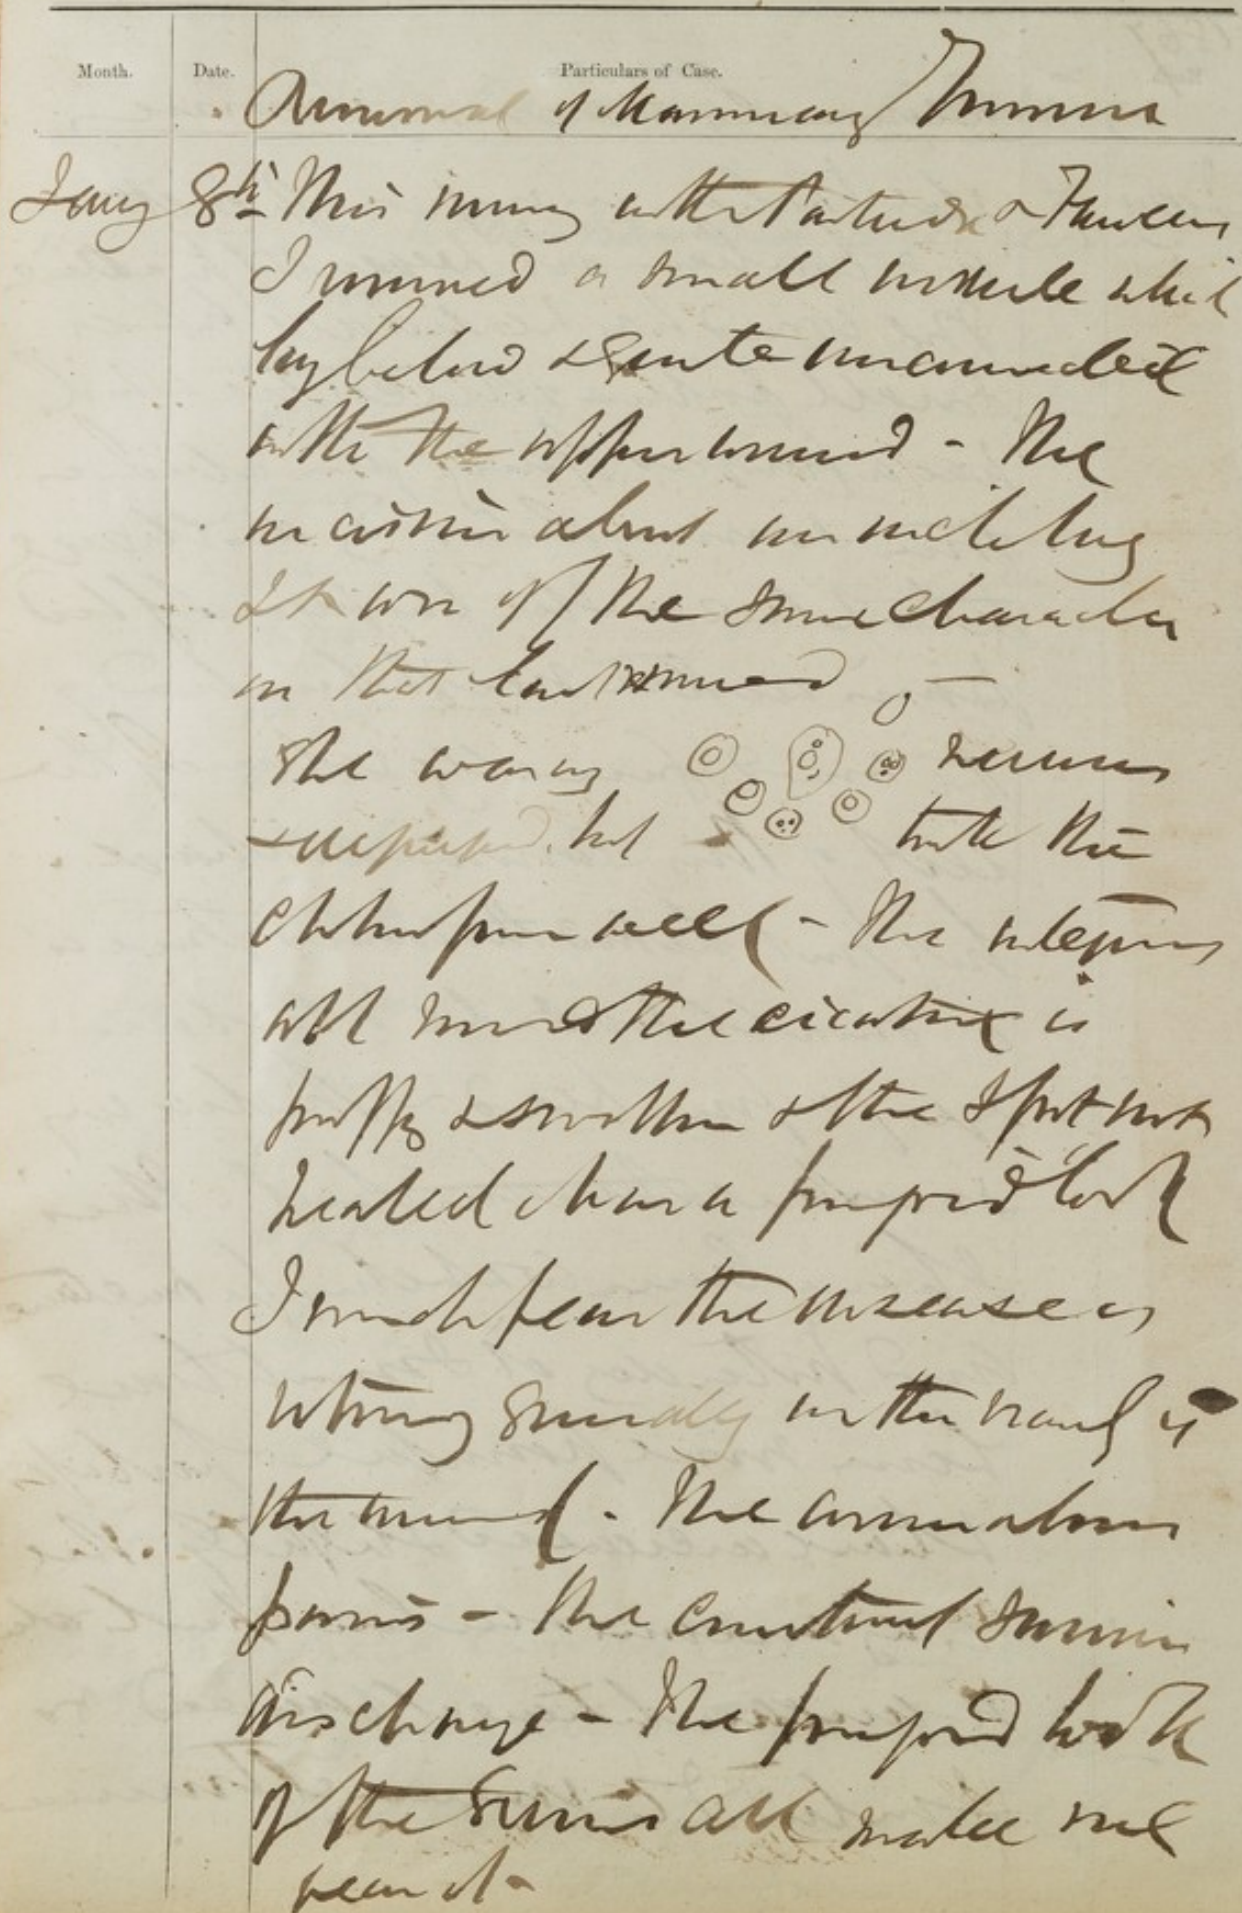 Month. Date. Particulars of Case.
Removal of Mammary Tumour
Jany 8th This morng with Partridge &
I removed a small nodule which
lay below & quite unconnected
with the upper wound - The
incision about an inch long
It was of the same character
as that last removed
She was very nervous
& but took the
Chloroform well - The integums
all round the cicatrix is
puffy & swollen & the spot not
healed has a fungoid look
I much fear the disease is
returning generally in the neighd of
the wound. The anomalous
pains - The continued sanious
discharge - The fungoid look
of the all make me
fear it -